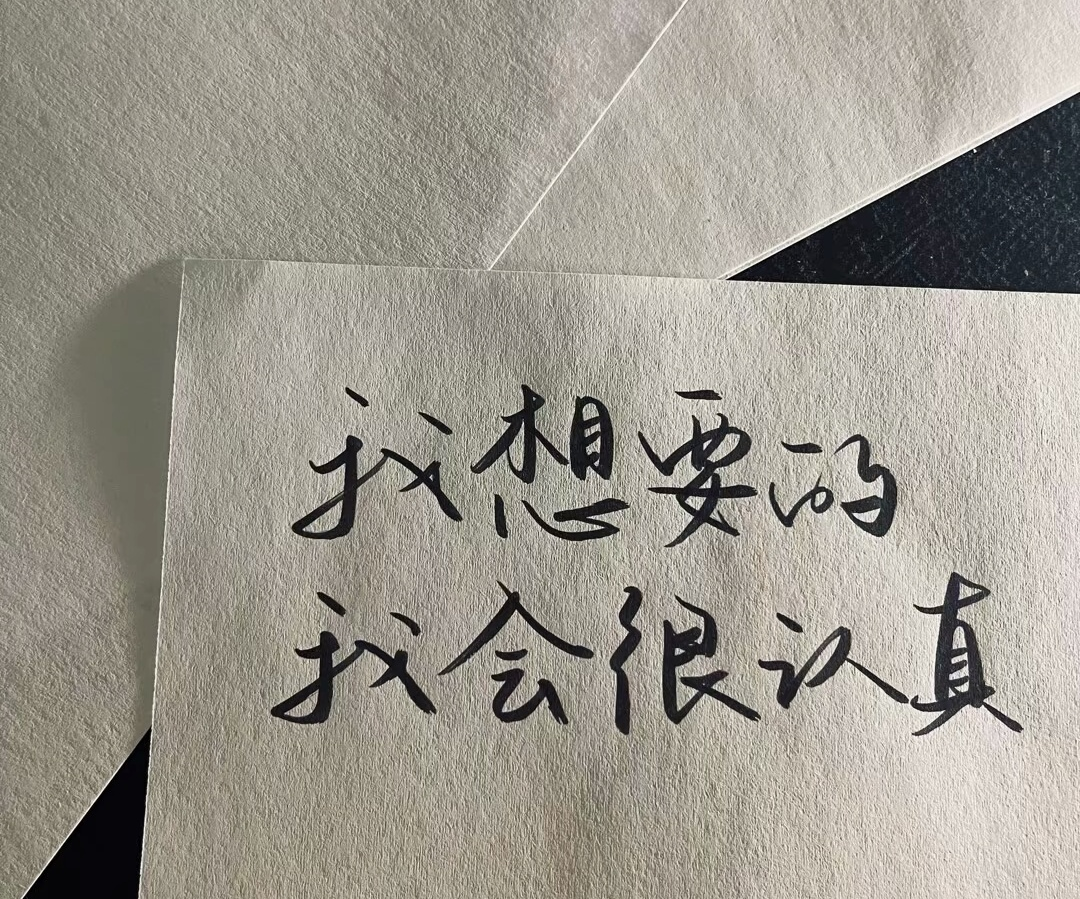 我想要的
我会很认真